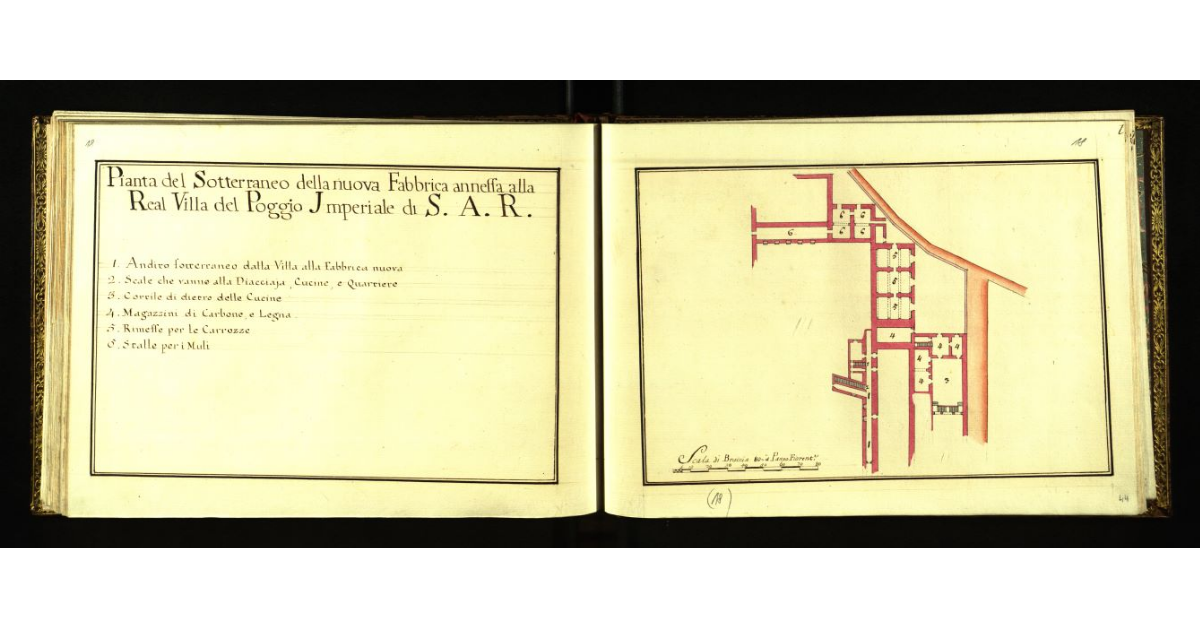 18
Pianta del Sotterraneo della nuova Fabbrica annessa alla
Real Villa del Poggio Imperiale di S. A. R.
1. Andito sotterraneo dalla Villa alla Fabbrica nuova
2. Scale che vanno alla Diacciaja, Cucine, e Quartiere
3. Cortile di dietro delle Cucine
4. Magazzini di Carbone, e Legna.
5. Rimesse per le Carrozze
6. Stalle per i Muli
18
6 6
6 6 6
5
5
5
4
4 4
4
4
3
1
Scala di Braccia 80 a Panno Fiorent.
(18)
44